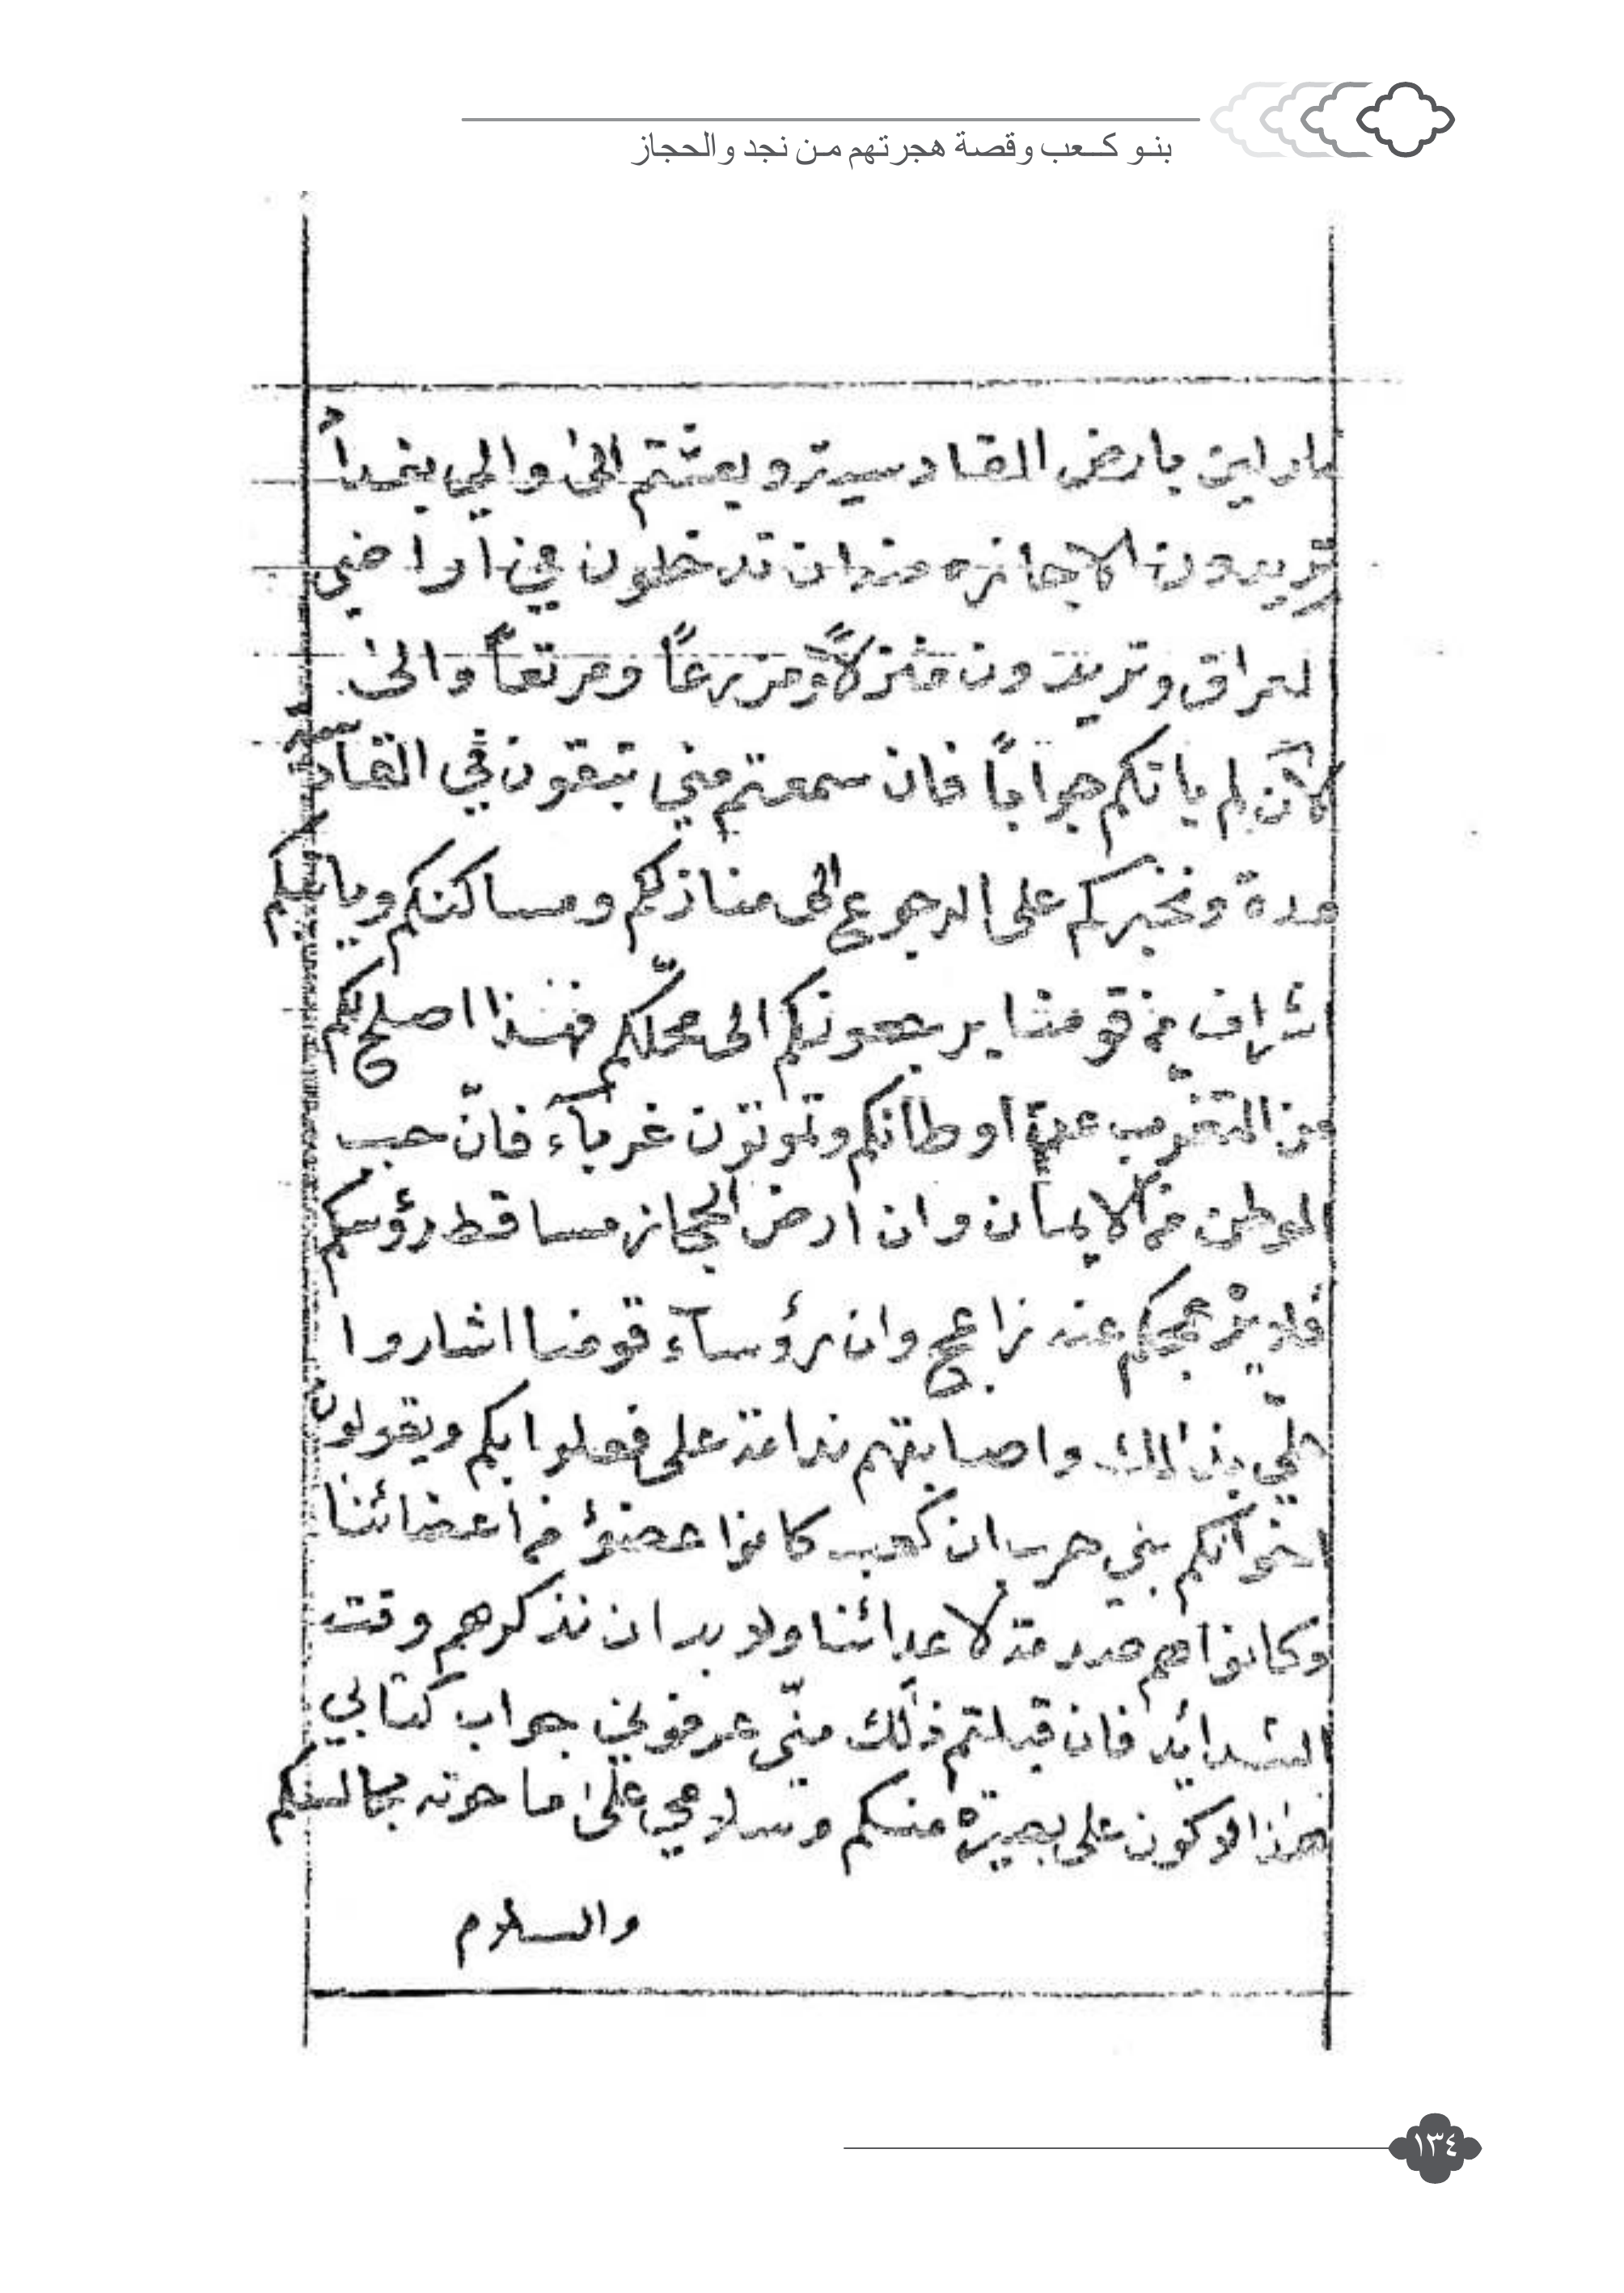 بنو كعب وقصة هجرتهم من نجد والحجاز
بارض القادسية وبعثتم الىٰ والي بغداد
تريدون الاجازه منه ان تدخلون في اراضي
لعراق وتريدون منزلاً ومزرعاً ومرتعاً والىٰ
لآن لم ياتكم جواباً فان سمعتم مني تبقون في القادسية
مدة ونخبركم على الرجوع الى منازلكم ومساكنكم وياتيكم
اشراف من قومنا يرجعونكم الى محلّكم فهذا اصلح لكم
من التغرّب عن اوطانكم وتموتون غرباآء فانّ حب
الوطن من الايمان وان ارض الحجاز مساقط رؤسكم
فلا يزعجكم عنه زاعج وان رؤسآء قومنا اشاروا
عليّ بذالك واصابتهم ندامة على فعلوا بكم ويقولون
اخوانكم بني حرب ان كعب كانوا عضوٌ من اعضائنا
وكانوا هم لاعدائنا ولا بد ان نذكرهم وقت
الشدائد فان قبلتم ذٰلك منّي عرفوني جواب كتابي
هٰذا لاكون على بصيرة منكم وسلامي علىٰ ما حوته مجالسكم
والسلام
١٣٤